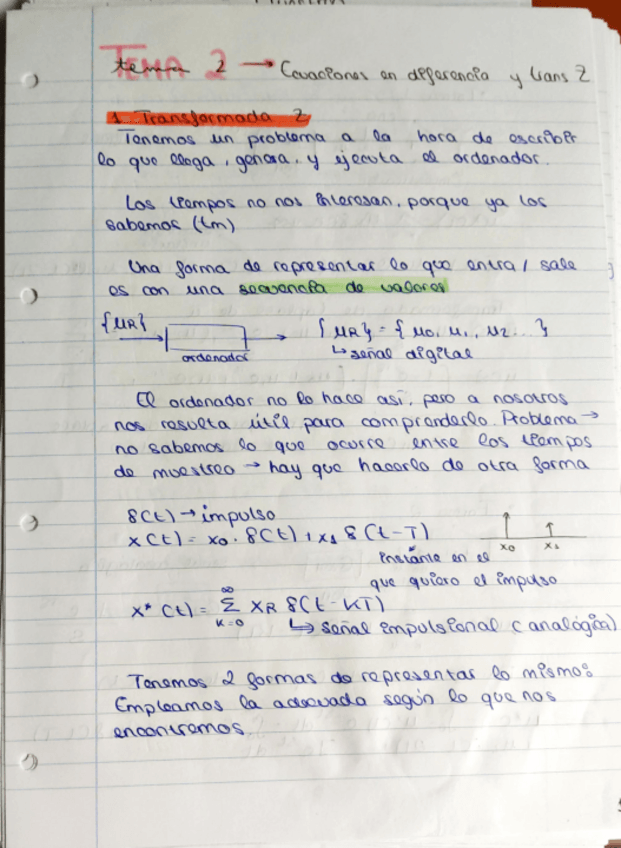 TEMA 2 → Ecuaciones en diferencia y trans Z
1. Transformada Z
Tenemos un problema a la hora de escribir
lo que llega, genera, y ejecuta el ordenador.
Los tiempos no nos interesan, porque ya los
sabemos (tm)
Una forma de representar lo que entra / sale
es con una secuencia de valores
{uk} → ordenador → {uk} = {u0, u1, u2...}
↳ señal digital
El ordenador no lo hace así, pero a nosotros
nos resulta útil para comprenderlo. Problema →
no sabemos lo que ocurre entre los tiempos
de muestreo → hay que hacerlo de otra forma
δ(t) → impulso
x(t) = x0 · δ(t) + x1 δ(t-T)
x0 x1
instante en el
que quiero el impulso
x*(t) = ∞ Σ k=0 xk δ(t-kT)
↳ señal impulsional (analógica)
Tenemos 2 formas de representar lo mismo:
Empleamos la adecuada según lo que nos
encontremos.